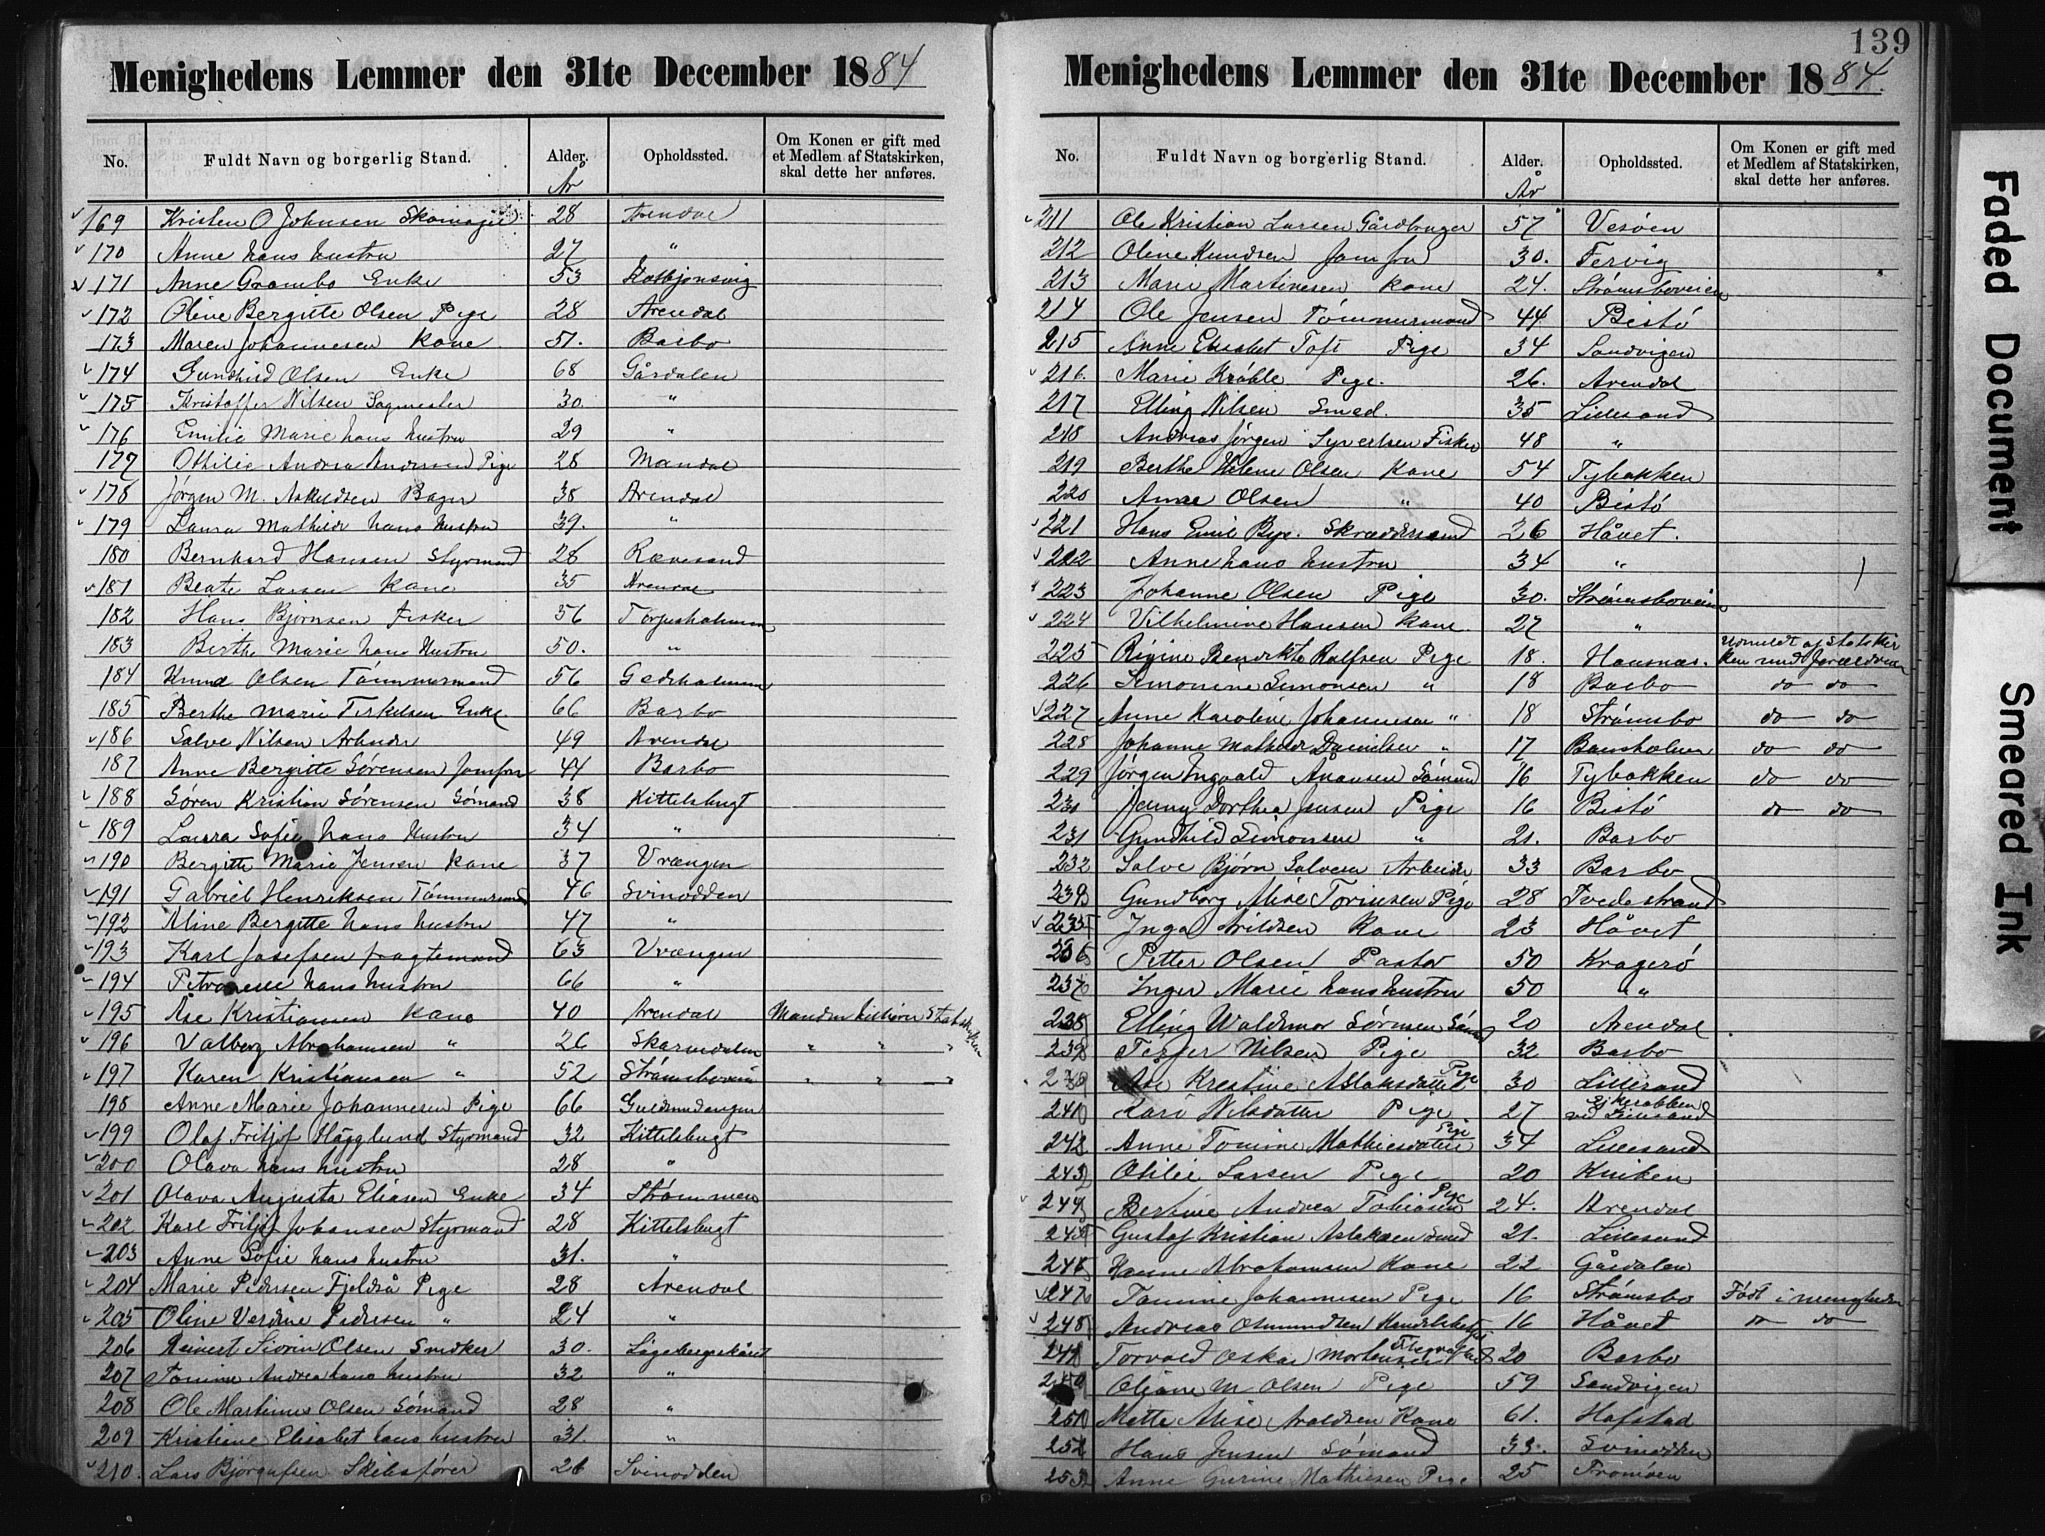 Menighedens Lemmer den 31te December 1884
No. Fuldt Navn og borgerlig Stand. Alder. År Opholdssted. Om Konen er gift med et Medlem af Statskirken, skal dette her anføres.
169 Kristen O Johnsen Skomager 28 Arendal
170 Anne hans hustru 27 "
171 Anne Grambo Enke 53 Kolbjønsvig
172 Oline Bergitte Olsen Pige 28 Arendal
173 Maren Johannesen Kone 51. Barbo
174 Gunhild Olsen Enke 68 Gårdalen
175 Kristoffer Nilsen Sagmester 30. "
176 Emilie Marie hans hustru 29 "
177 Othilie Andrea Andersen Pige 28 Mandal
178 Jørgen M. Askildsen Bager 38 Arendal
179 Laura Mathilde hans hustru 39. "
180 Bernhard Hansen Styrmand 28 Rævesand
181 Beate Larsen Kone 35 Arendal
182 Hans Bjørnsen Fisker 56 Torjusholmen
183 Berthe Marie hans Hustru 50. "
184 Knud Olsen Tømmermand 56 Gedeholmen
185 Berthe Marie Terkelsen Enke 66 Barbo
186 Salve Nilsen Arbeider 49 Arendal
187 Anne Bergitte Sørensen Jomfru 44 Barbo
188 Søren Kristian Sørensen Sømand 38 Kittelsbugt
189 Laura Sofie hans Hustru 34 "
190 Bergitte Marie Jensen Kone 37 Vrængen
191 Gabriel Henriksen Tømmermand 46 Svinodden
192 Aline Bergitte hans hustru 47 "
193 Karl Josefsen fragtemand 63 Vrængen
194 Petronelle hans hustru 66 "
195 Åse Kristiansen Kone 40 Arendal Manden tilhører Statskirken
196 Valborg Abrahamsen " 26 Skarvedalen " " "
197 Karen Kristiansen " 52 Strømsboveien " " "
198 Anne Marie Johannesen Pige 66 Guldsmedengen
199 Olaf Fritjof Hägglund Styrmand 32 Kittelsbugt
200 Olava hans hustru 28 "
201 Olava Augusta Eliasen Enke 34 Strømmen
202 Karl Fritjof Johansen Styrmand 28 Kittelsbugt
203 Anne Sofie hans hustru 31. "
204 Marie Pedersen Fjeldså Pige 28 Arendal
205 Oline Verdine Pedersen " 24 "
206 Reinert Siorin Olsen Snedker 30.
207 Tomine Andrea hans hustru 32 "
208 Ole Martinus Olsen Sømand 28 "
209 Kristiane Elisabet hans hustru 31. "
210. Lars Bjørgufsen Skibsfører 26 Svinodden
139
Menighedens Lemmer den 31te December 1884.
No. Fuldt Navn og borgerlig Stand. Alder. År Opholdssted. Om Konen er gift med et Medlem af Statskirken, skal dette her anføres.
211 Ole Kristian Larsen Gårdbruger 57 Vesøen
212 Oline Knudsen Jomfru 30. Fervig
213 Marie Martinesen Kone 24. Strømsboveien
214 Ole Jensen Tømmermand 44 Bestø
215 Anne Elisabet Toft Pige 34 Sandvigen
216. Marie Krøhle Pige. 26. Arendal
217 Elling Nilsen Smed. 35 Lillesand
218 Andreas Jørgen Syvertsen Fisker 48 "
219 Berthe Helene Olsen Kone 54 Tybakken
220 Anne Olsen " 40 Bestø
221 Hans Emil Bye. Skræddersvend 26 Håvet.
222 Anne hans hustru 34 "
223 Johanne Olsen Pige 30. Strømsboveien
224 Vilhelmine Hansen Kone 27 "
225 Regine Bendikte Rolfsen Pige 18. Hausnæs. Udmeldt af Statskirken med forældrene
226 Simonine Simonsen " 18 Barbo do do
227 Anne Karoline Johannesen " 18 Strømsbo do do
228 Johanne Mathilde Danielsen " 17 Bausholmen do do
229 Jørgen Ingvald Anansen Sømand 16 Tybakken do do
230 Jenny Dorthea Jensen Pige 16 Bestø do do
231 Gunhild Simonsen " 21. Barbo
232 Salve Bjørn Salvesen Arbeider 33 Barbo
Gundborg Alise Torinsen Pige 28 Tvedestrand
235 Inga Arildsen Kone 23 Håvet
236 Petter Olsen Pastor 50 Kragerø
237 Inger Marie hans hustru 50 " "
238 Elling Waldemar Sørensen Sømd 20 Arendal
239 Terjer Nilsen Pige 32 Barbo
Åse Krestine Aslaksdatter Pige 30 Lillesand
241 Kari Nilsdatter Pige 27 ved Lillesand
242 Anne Tomine Mathiesdatter Pige 34 Lillesand
243 Otilie Larsen Pige 20 Kniken
244 Bertine Andrea Tobiasen Pige 24. Arendal
245 Gustaf Kristian Aslaksen smed 21. Lillesand
246 Hanne Abrahamsen Kone 22 Gårdalen
247 Tomine Johannesen Pige 16 Strømsbo Født i menigheden
248 Andreas Osmundsen Handelsbetj 16 Håvet do do
249 Torvald Oskar Mortensen 20 Barbo
250 Oliane M Olsen Pige 59 Sandvigen
251 Mette Alise Araldsen Kone 61. Hofstad
252 Hans Jensen Sømand 33. Svinodden
253 Anne Gurine Mathiesen Pige 25 Tromøen
Faded Document
Smeared Ink